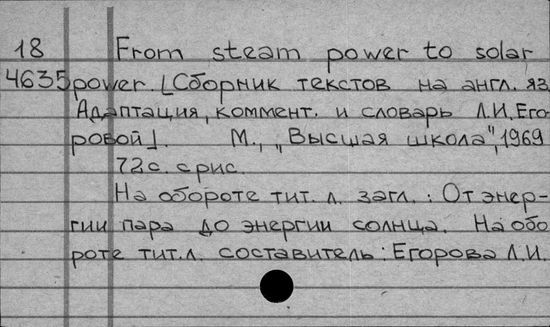 18 From steam power to solar
4635 power. [Сборник текстов на англ. яз
Адаптация, коммент. и словарь Л.И. Его
ровой]. М., „Высшая школа", 1969
72 с. с рис.
На обороте тит. л. загл.: От энер-
гии пара до энергии солнца. На обо
роте тит. л. составитель: Егорова Л.И.